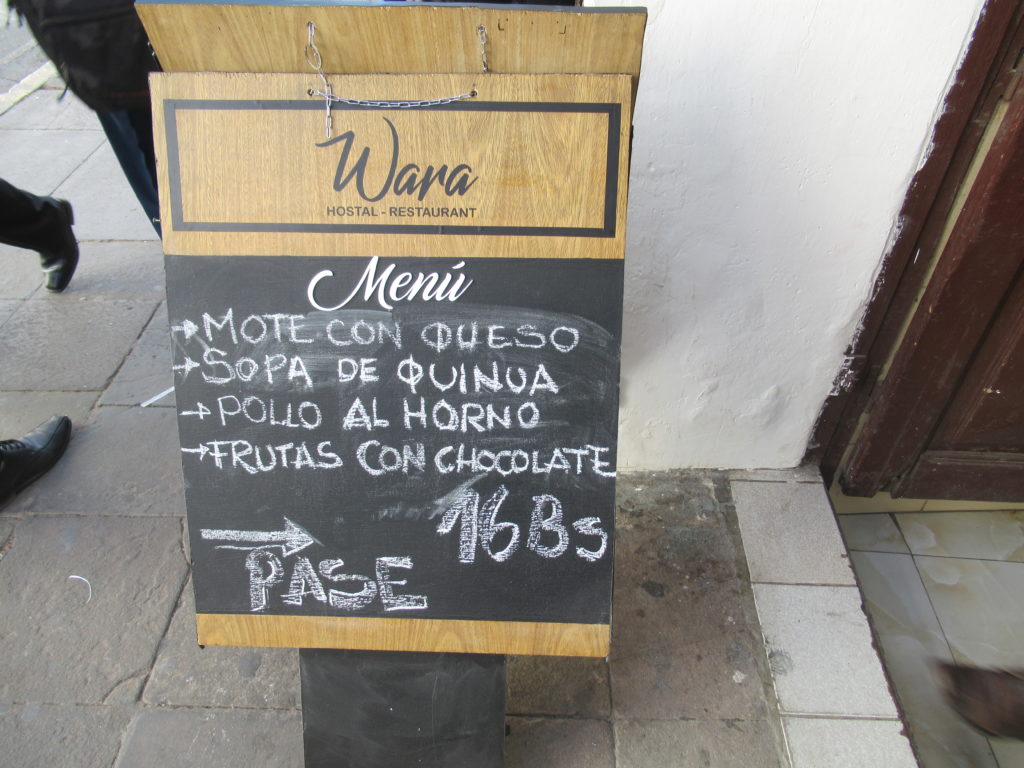 Wara
HOSTAL - RESTAURANT
Menú
→ MOTE CON QUESO
→ SOPA DE QUINUA
→ POLLO AL HORNO
→ FRUTAS CON CHOCOLATE
16 Bs
→ PASE